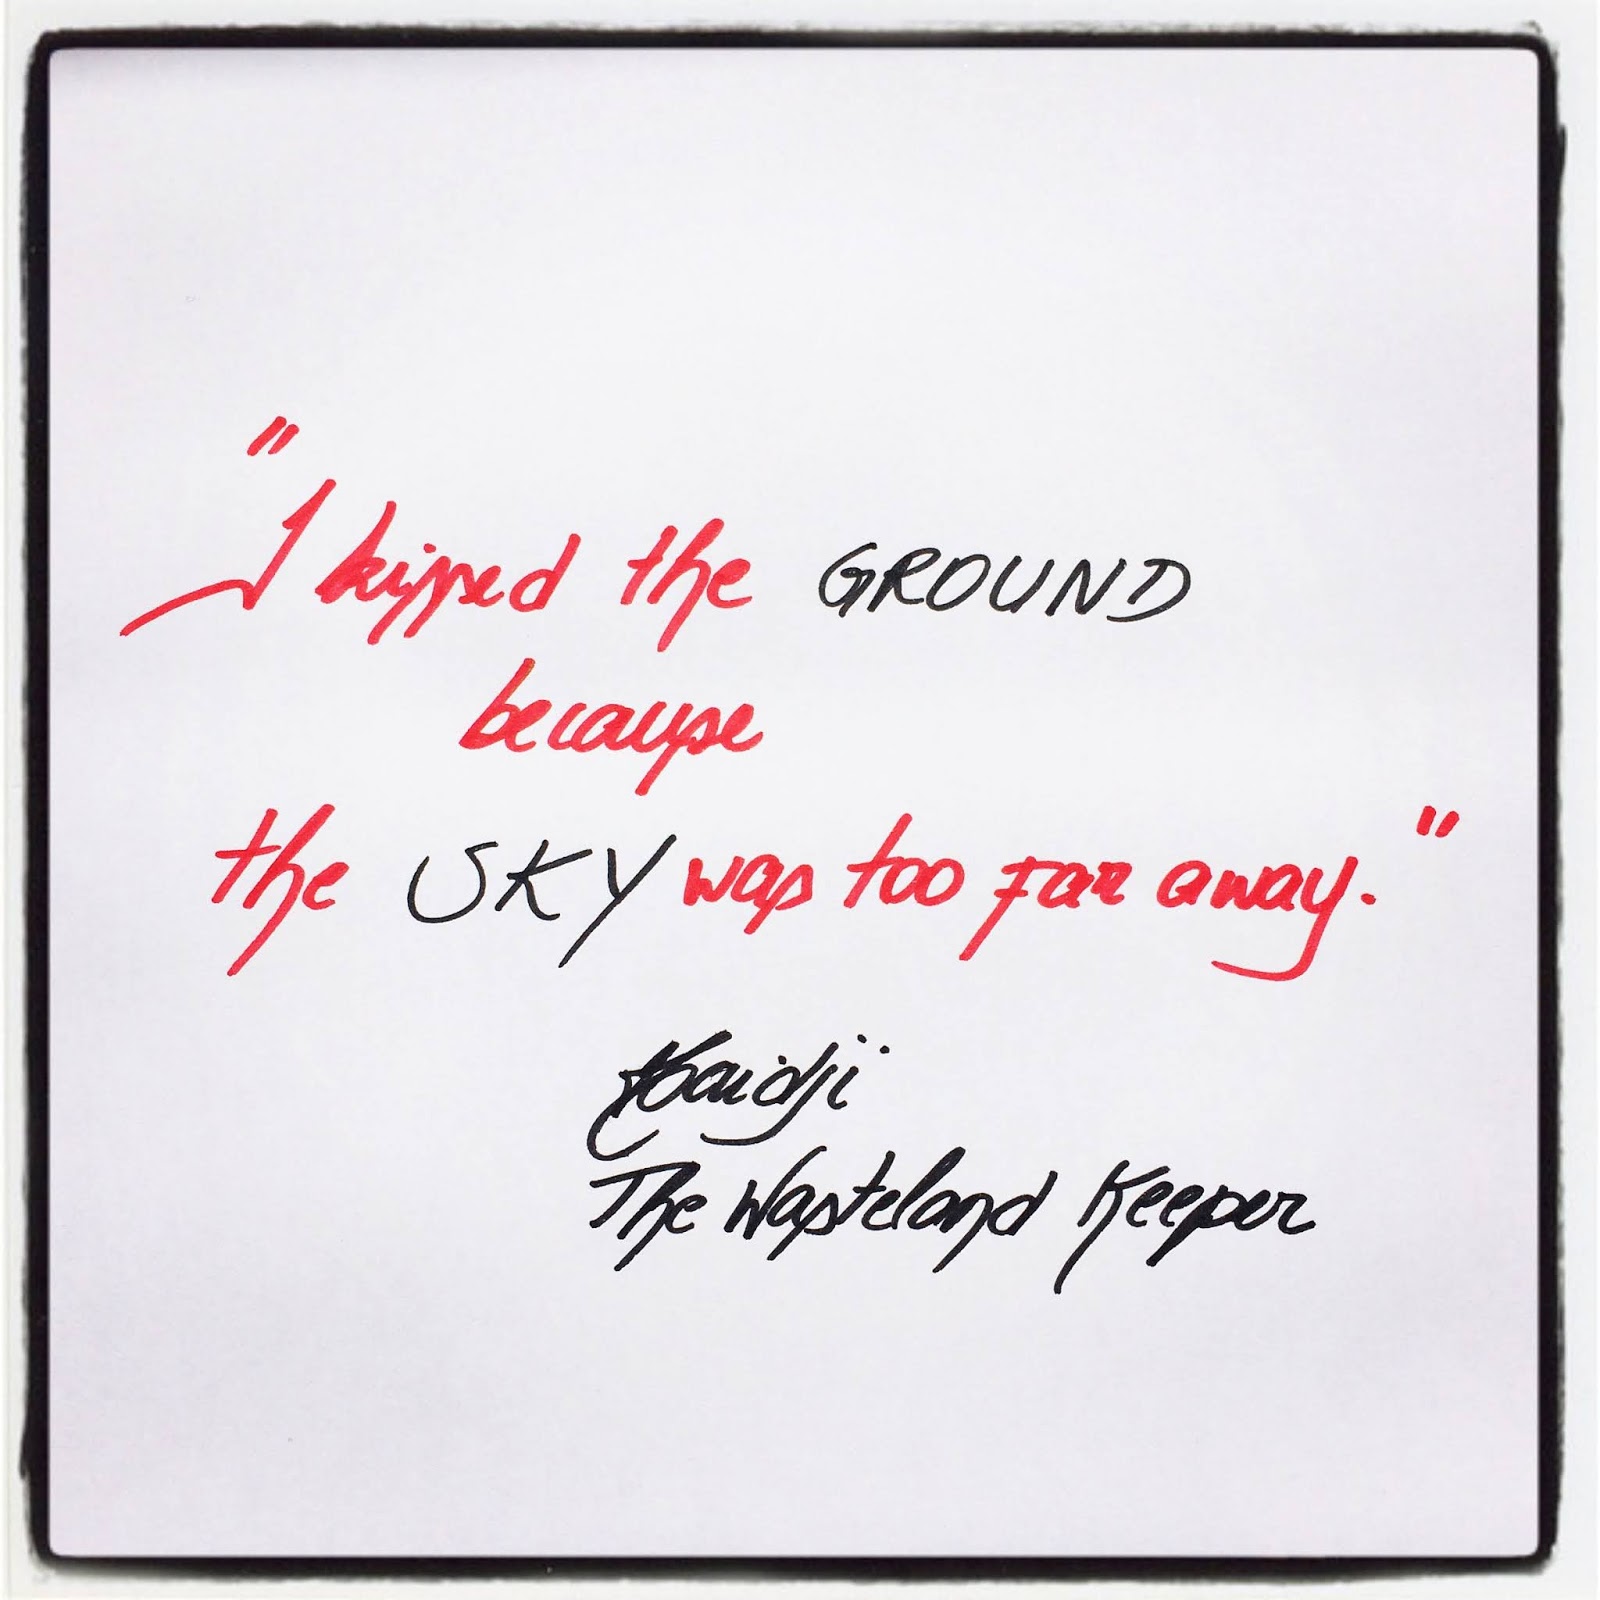 "I kissed the GROUND
because
the SKY was too far away."
Haidji
The Wasteland Keeper